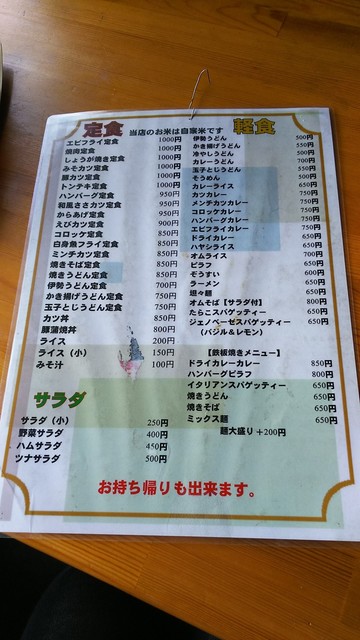 定食 当店のお米は自家米です 軽食
エビフライ定食 1000円
焼肉定食 1000円
しょうが焼き定食 1000円
みそカツ定食 1000円
豚カツ定食 1000円
トンテキ定食 1000円
ハンバーグ定食 950円
和風ささカツ定食 950円
からあげ定食 950円
えびカツ定食 900円
コロッケ定食 850円
白身魚フライ定食 850円
ミンチカツ定食 850円
焼きそば定食 850円
焼きうどん定食 850円
伊勢うどん定食 700円
かき揚げうどん定食 750円
玉子とじうどん定食 750円
カツ丼 850円
豚蒲焼丼 800円
ライス 200円
ライス（小） 150円
みそ汁 100円
サラダ
サラダ（小） 250円
野菜サラダ 400円
ハムサラダ 450円
ツナサラダ 500円
伊勢うどん 500円
かき揚げうどん 550円
冷やしうどん 500円
カレーうどん 700円
玉子とじうどん 550円
そうめん 500円
カレーライス 650円
カツカレー 750円
メンチカツカレー 750円
コロッケカレー 750円
ハンバーグカレー 750円
エビフライカレー 750円
ドライカレー 650円
ハヤシライス 650円
オムライス 700円
ピラフ 650円
ぞうすい 600円
ラーメン 650円
坦々麺 650円
オムそば【サラダ付】 800円
たらこスパゲッティー 650円
ジェノベーゼスパゲッティー 650円
（バジル＆レモン）
【鉄板焼きメニュー】
ドライカレーカレー 850円
ハンバーグピラフ 800円
イタリアンスパゲッティー 650円
焼きうどん 650円
焼きそば 650円
ミックス麺 650円
麺大盛り＋200円
お持ち帰りも出来ます。